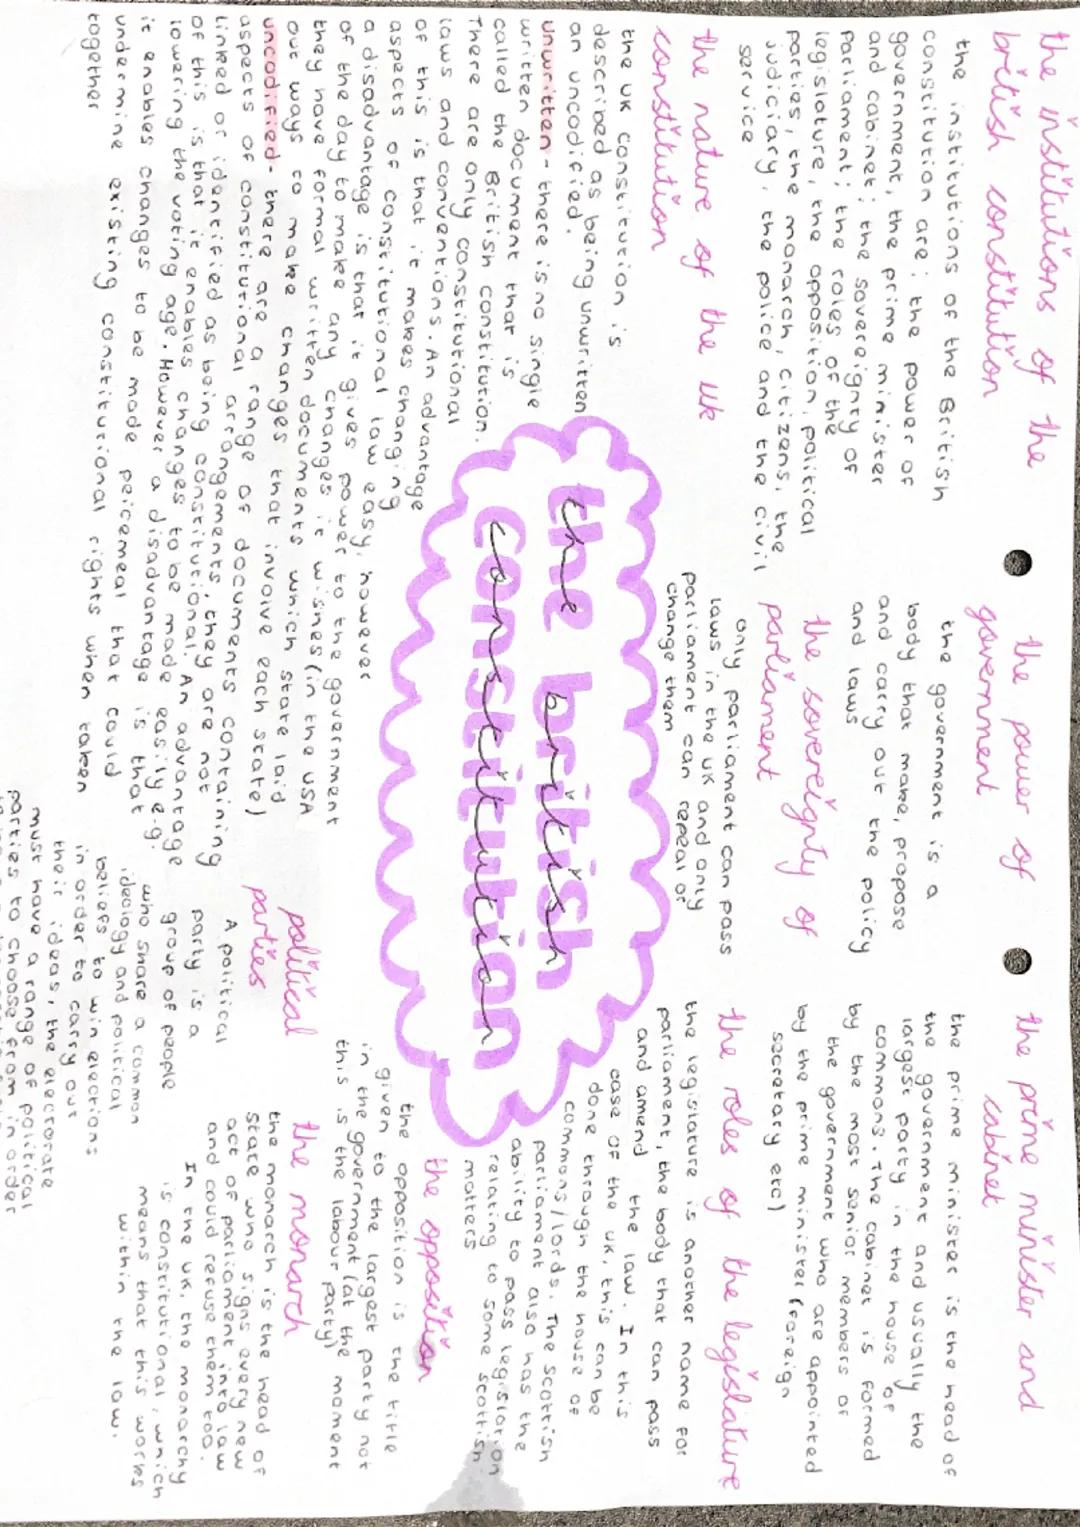 the institutions of the
british constitution
the institutions of the British
constitution are: the power of
government, the prime minister
and cabinet; the sovereignty of
parliament; the roles of the
legislature, the opposition, political
parties, the monarch, citizens, the
judiciary, the police and the civil
service
the nature of the uk
constitution
the UK constitution is
described as being unwritten
an uncodified.
unwritten - there is no single
written document that is
called the British constitution.
There are only constitutional
laws and conventions. An advantage
of this is that it makes changing
aspects of constitutional law easy, however
a disadvantage is that it gives power to the government
of the day to make any changes it wishes (in the USA
they have formal written documents which state laid
out ways to make changes that involve each state)
uncodified - there are a range of documents containing
aspects of constitutional arrangements, they are not
linked or identified as being constitutional. An advantage
of this is that it enables changes to be made easily e.g.
lowering the voting age. However a disadvantage is that
it enables changes to be made peicemeal that could
undermine existing constitutional rights when taken
together
the british
constitution
the power of
government
the government is a
body that make, propose
and carry out the policy
and laws
the sovereignty of
parliament
only parliament can pass
laws in the UK and only
parliament can repeal or
change them
the prime minister and
cabinet
the prime minister is the head of
the government and usually the
largest party in the house of
commons. The cabinet is formed
by the most senior members of
the government who are appointed
by the prime minister (foreign
secretary etc)
the roles of the legislature
the legislature is another name for
parliament, the body that can pass
and amend the law. In this
case of the UK, this can be
done through the house of
commons/lords. The scottish
parliament also has the
ability to pass legislation
relating to some scottish
maters
the opposition
the opposition is the title
given to the largest party not
in the government (at the moment
this is the labour party)
political
parties
A political
party is a
group of people
who share a common
ideology and political
beliefs to win elections
in order to carry out
their ideas, the electorate
must have a range of political
parties to choose from in order
the monarch
the monarch is the head of
state who signs every new
act of parliament into law
and could refuse them too.
In the UK, the monarchy
is constitutional, which
means that this works
within the law.